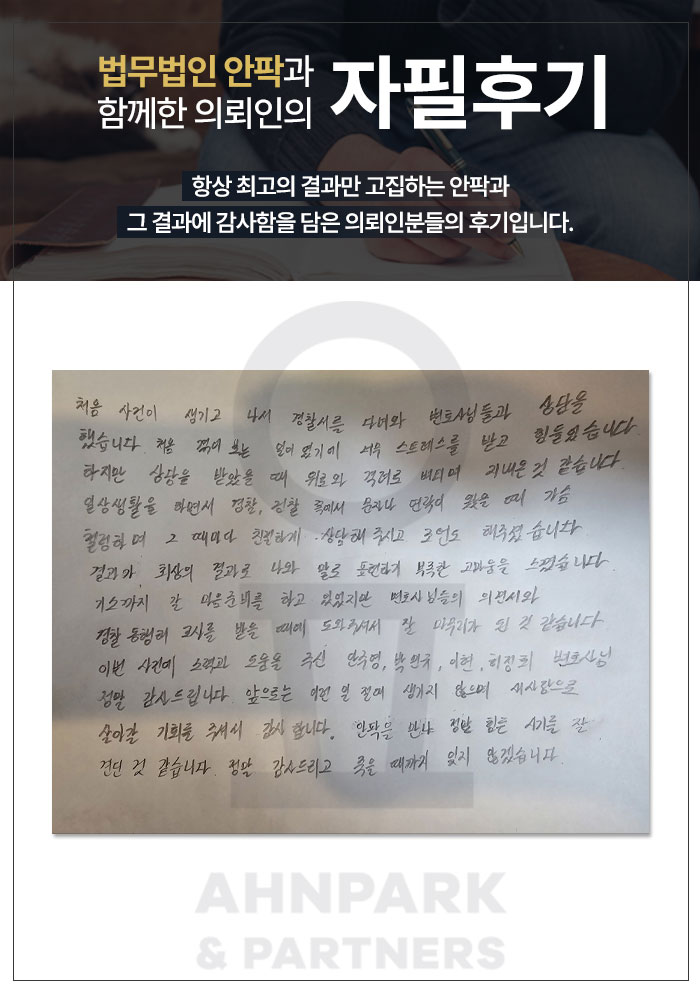 법무법인 안팍과
함께한 의뢰인의
자필후기
항상 최고의 결과만 고집하는 안팍과
그 결과에 감사함을 담은 의뢰인분들의 후기입니다.
처음 사건이 생기고 나서 경찰서를 다녀와 변호사님들과 상담을
했습니다. 처음 겪어 보는 일이었기에 너무 스트레스를 받고 힘들었습니다.
하지만 상담을 받았을 때 위로와 격려로 버티며 지내온 것 같습니다.
일상생활을 하면서 경찰, 검찰 쪽에서 문자나 연락이 왔을 때 가슴
철렁하며 그 때마다 친절하게 상담해 주시고 조언도 해주셨습니다.
결과가 최상의 결과로 나와 말로 표현하기 부족한 고마움을 느꼈습니다.
기소까지 갈 마음준비를 하고 있었지만 변호사님들의 의견서와
경찰 동행해 조사를 받을 때에 도와주셔서 잘 마무리가 된 것 같습니다.
이번 사건에 노력과 도움을 주신 안주영, 박민규, 이현, 변호사님
정말 감사드립니다. 앞으로는 이런 일 절대 생기지 않으며 새사람으로
살아갈 기회를 주셔서 감사합니다. 안팍을 만나 정말 힘든 시기를 잘
견딘 것 같습니다. 정말 감사드리고 죽을 때까지 잊지 않겠습니다.
AHNPARK
& PARTNERS